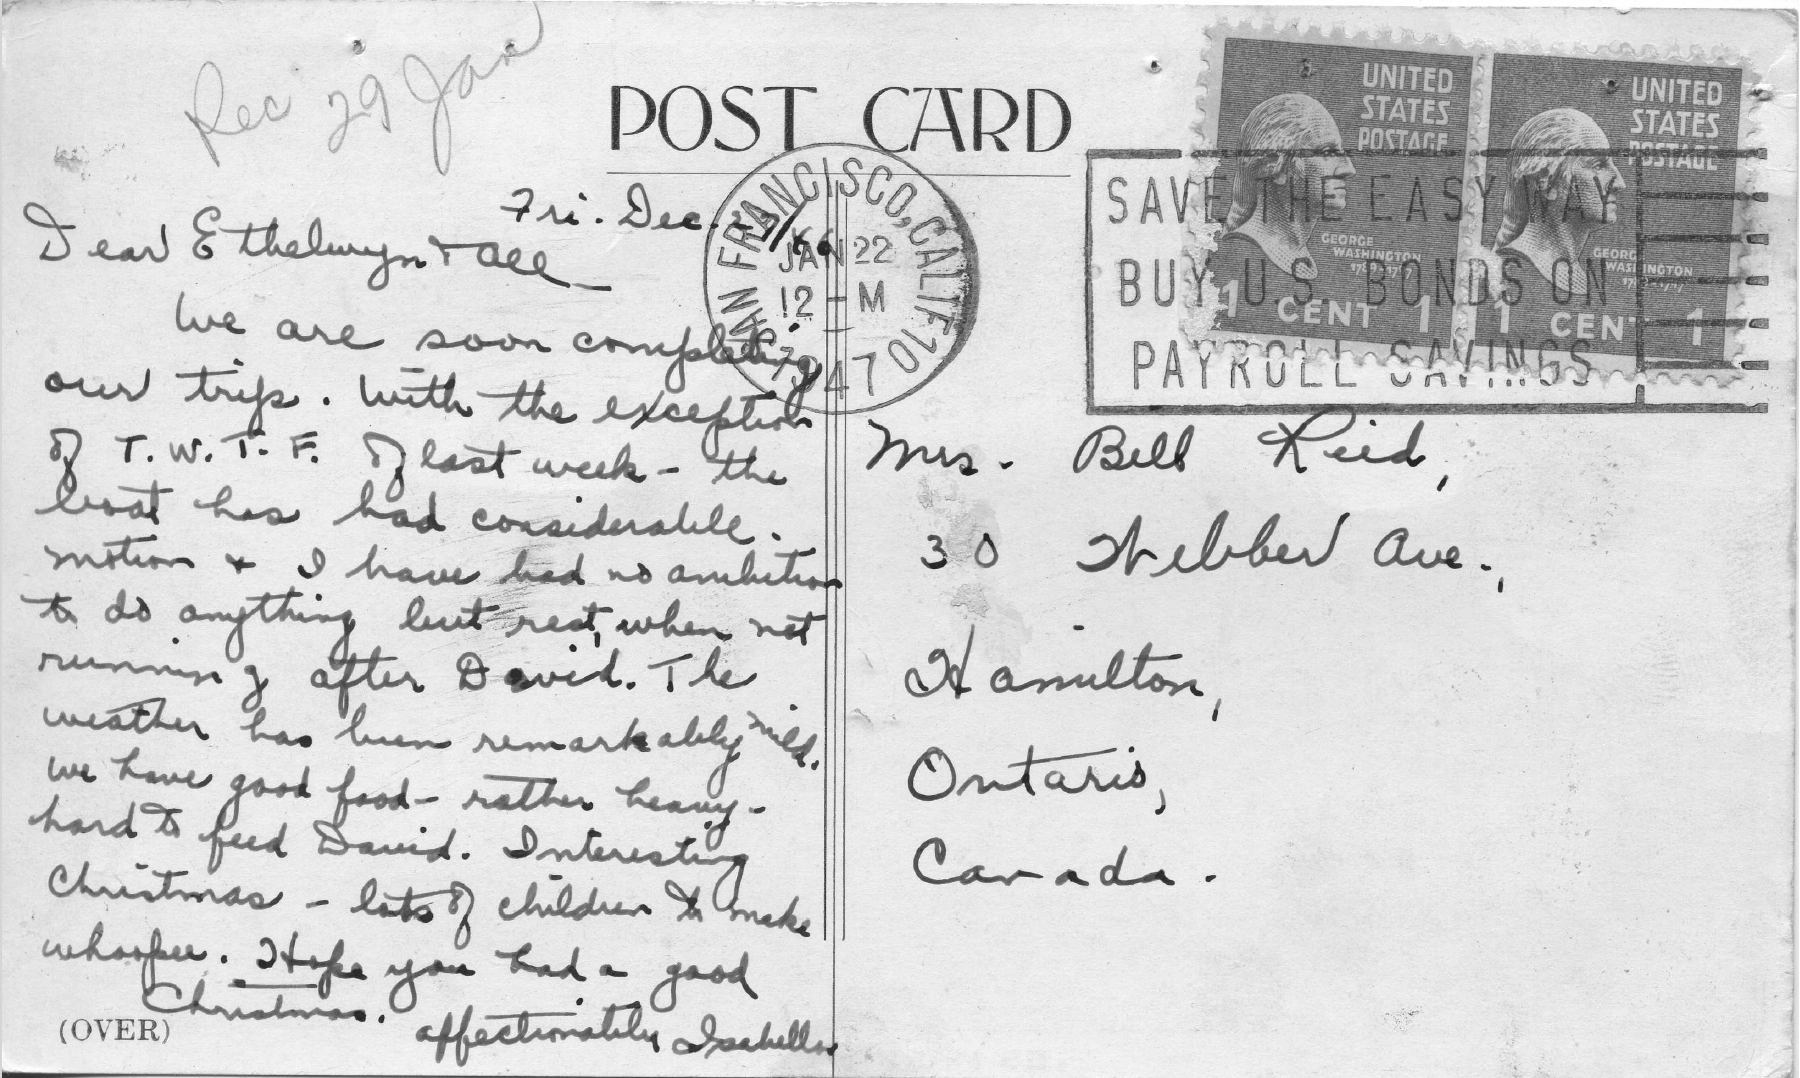 Rec 29 Jan
POST CARD
SAN FRANCISCO, CALIF. 10
JAN 22
12 - M
1947
SAVE THE EASY WAY
BUY U.S. BONDS ON
PAYROLL SAVINGS
UNITED
STATES
POSTAGE
GEORGE
WASHINGTON
1 CENT 1
UNITED
STATES
POSTAGE
GEORGE
WASHINGTON
1 CENT 1
Fri. Dec.
Dear Ethelwyn & All _
We are soon completing
our trip. With the exception
of T. W. T. F. of last week - the
boat has had considerable
motion & I have had no ambition
to do anything but rest, when not
running after David. The
weather has been remarkably mild.
We have good food - rather heavy -
hard to feed David. Interesting
Christmas - lots of children to make
whoopee. Hope you had a good
Christmas.
affectionately Isabella
(OVER)
Mrs. Bell Reid,
30 Webber Ave.,
Hamilton,
Ontario,
Canada.